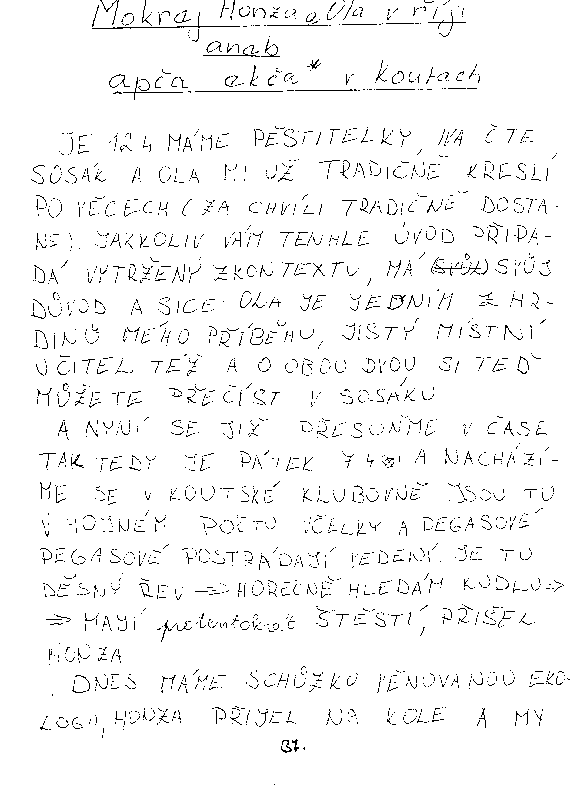 Mokraj Honza a Ola v říji
anab
apča akča* v koutach
JE 12.4 MÁME PĚSTITELKY, IVA ČTE
SOSÁK A OLA MI UŽ TRADIČNĚ KRESLÍ
PO VĚCECH (ZA CHVÍLI TRADIČNĚ DOSTA-
NE). JAKKOLIV VÁM TENHLE ÚVOD PŘIPA-
DÁ VYTRŽENÝ Z KONTEXTU, MÁ SVŮJ
DŮVOD A SICE OLA JE JEDNÍM Z HR-
DINŮ MÉHO PŘÍBĚHU, JISTÝ MÍSTNÍ
UČITEL TÉŽ A O OBOU DVOU SI TEĎ
MŮŽETE PŘEČÍST V SOSÁKU
A NYNÍ SE JIŽ PŘESUŇME V ČASE
TAK TEDY JE PÁTEK 7.4 A NACHÁZÍ-
ME SE V KOUTSKÉ KLUBOVNĚ JSOU TU
V HOJNÉM POČTU VČELKY A PEGASOVÉ
PEGASOVÉ POSTRÁDAJÍ VEDENÍ. JE TU
DĚSNÝ ŘEV ⇒ HOREČNĚ HLEDÁM KUDLU ⇒
⇒ MAJÍ protentokrát ŠTĚSTÍ, PŘIŠEL
HONZA
DNES MÁME SCHŮZKU VĚNOVANOU EKO-
LOGII, HONZA PŘIJEL NA KOLE A MY
37.